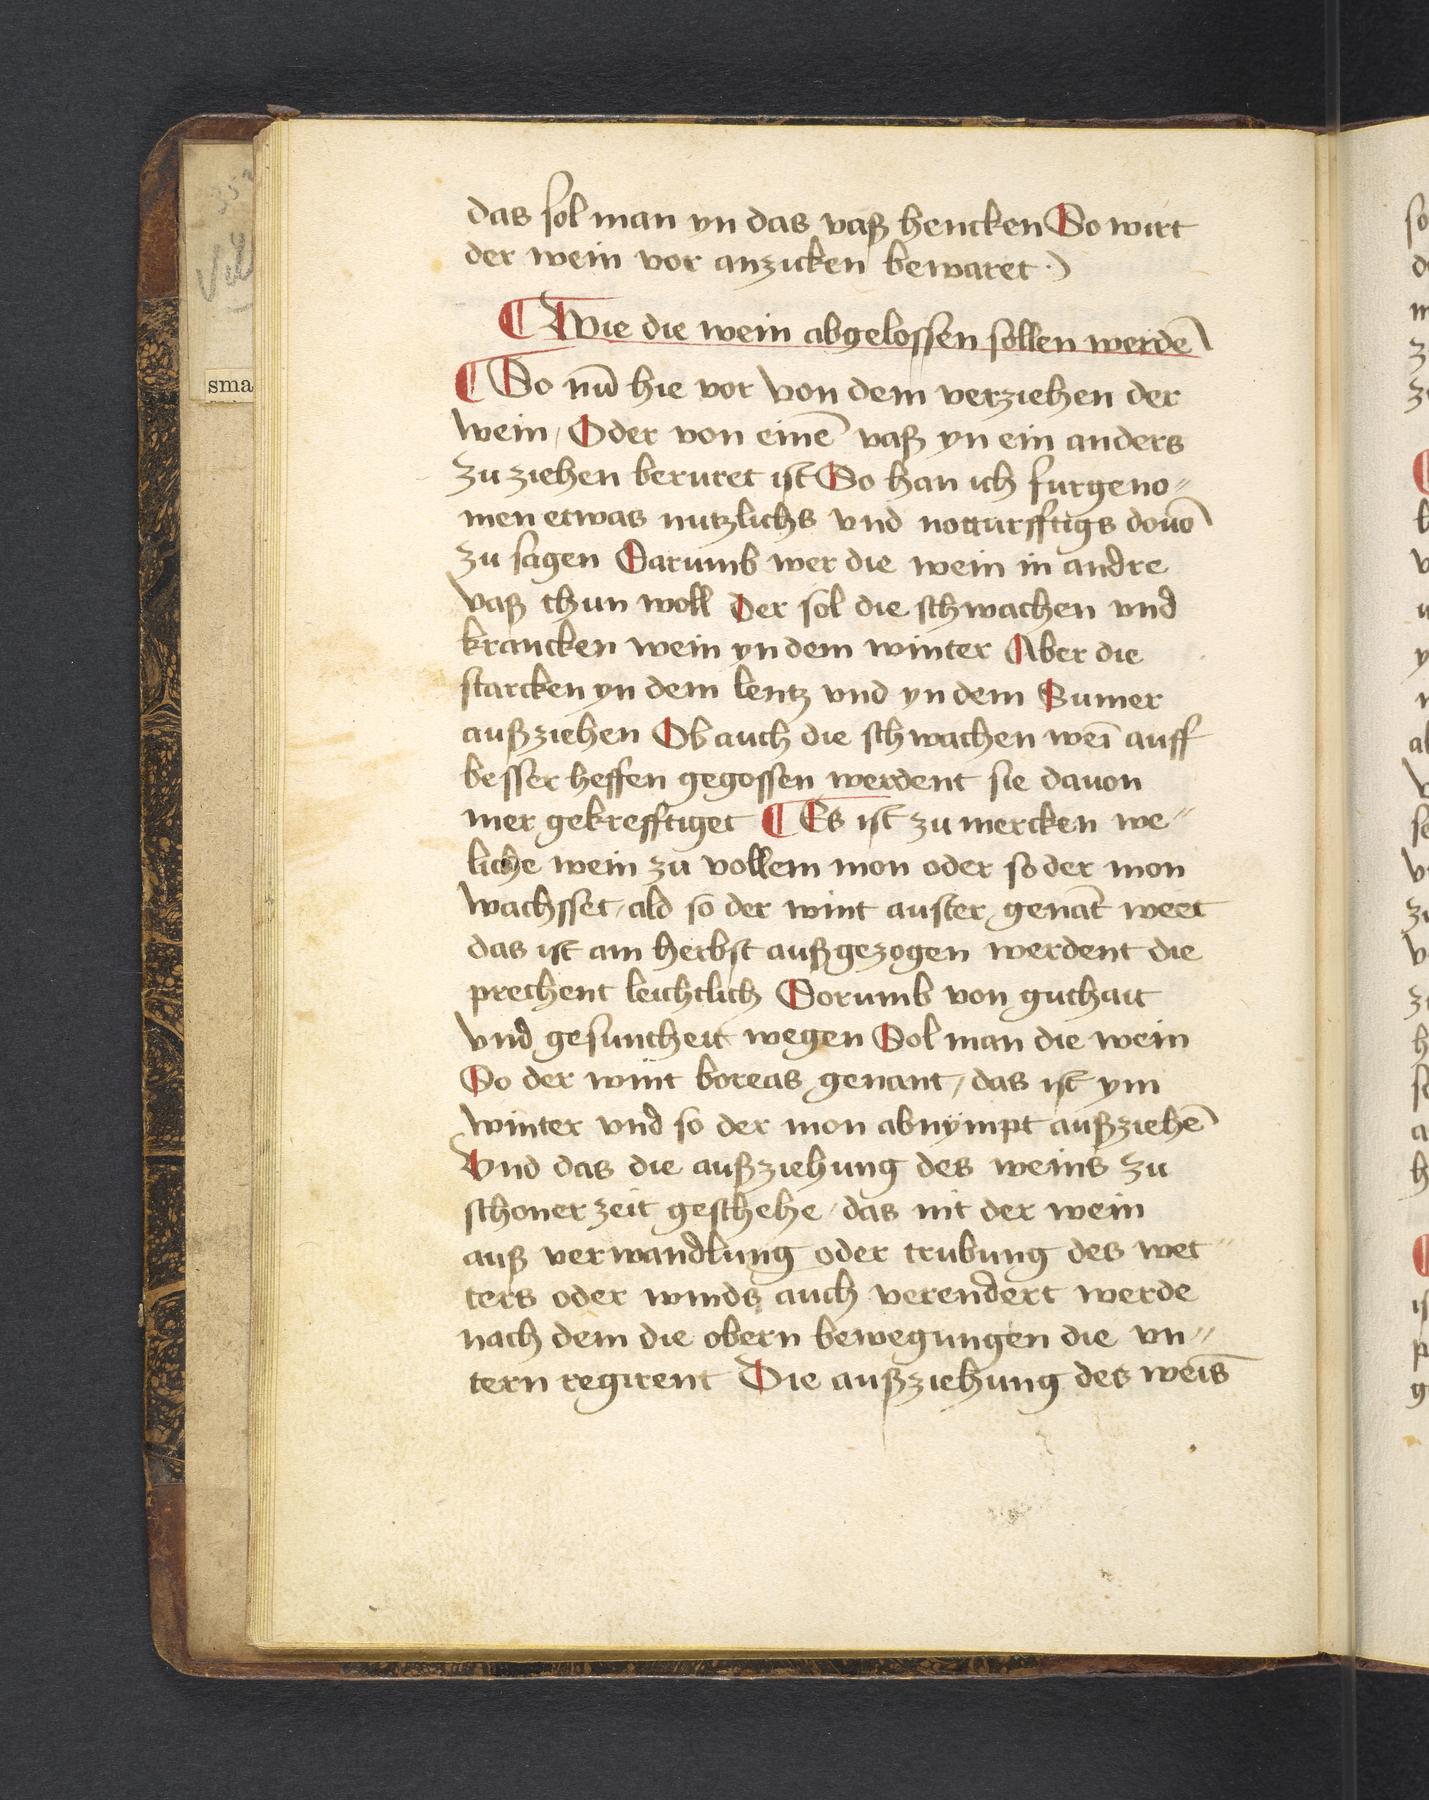 das sol man yn das vaß hencken So wirt
der wein vor anzicken bewaret
¶ Wie die wein abgelossen sollen werdē
¶ So nū hie vor von dem verziehen der
wein / Oder von einē vaß yn ein anders
zu ziehen beruret ist So han ich furgeno⸗
men etwas nutzlichs vnd notturfftigs douō
zu sagen Darumb wer die wein in andre
vaß thun woll Der sol die schwachen vnd
krancken wein yn dem winter Aber die
starcken yn dem lentz vnd yn dem Sumer
außziehen Ob auch die schwachen weī auff
besser heffen gegossen werdent sie dauon
mer gekrefftiget ¶ Es ist zu mercken we⸗
liche wein zu vollem mon oder so der mon
wachsset / ald so der wint auster genāt weet
das ist am herbst außgezogen werdent die
prechent leichtlich Dorumb von guthait
vnd gesuntheit wegen Sol man die wein
So der wint boreas genant / das ist ym
winter vnd so der mon abnympt außziehē
Vnd das die außziehung des weins zu
schoner zeit geschehe / das nit der wein
auß verwandlung oder trubung des wet⸗
ters oder winds auch verendert werde
nach dem die obern bewegungen die vn⸗
tern regirent Die außziehung des weīs
sma